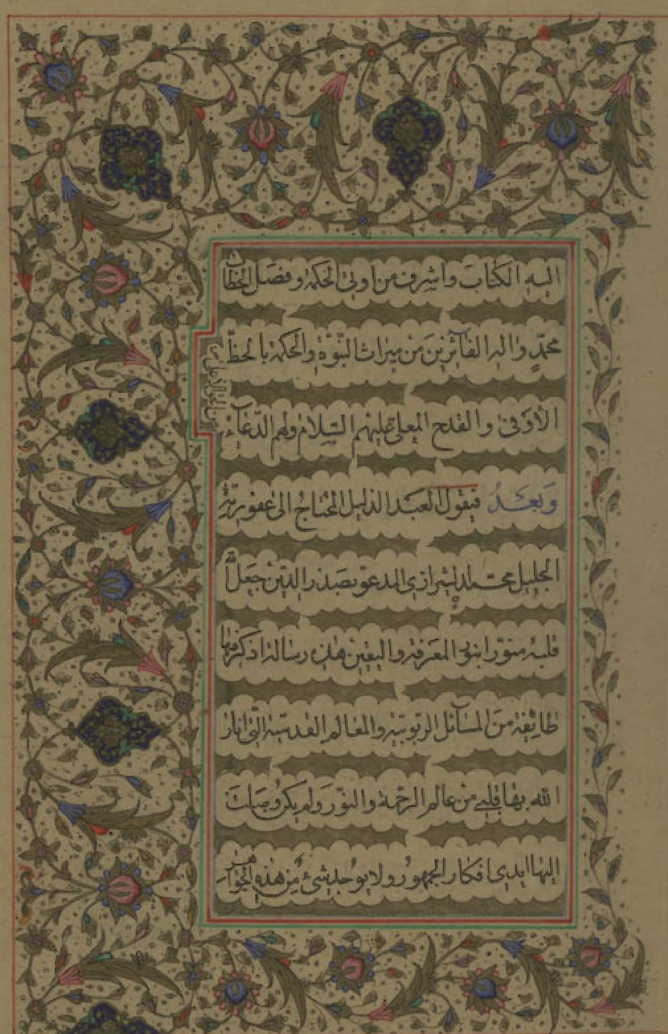 اليه الكتاب واشرف من اوتى الحكمة وفصل الخطاب
محمدٍ واله الفآئزين من ميراث النبّوة والحكمة بالحظّ
الأوفى والقدح المعلى عليهم السّلام ولهم الدّعآء
وَبَعدُ فيقول العبد الذليل المحتاج الى عفو ربّه
الجليل محمد الشيرازي المدعو بصدر الدّين جعل الله
قلبه منورا بنور المعرفة واليقين هذه رسالة اذكر فيها
طائفة من المسآئل الربوبيّة والمعالم القدسيّة الّتي انار
الله بها قلبي من عالم الرحمة والنّور ولم يكن وصلت
إليها ايدي افكار الجمهور ولا يوجد شئ من هذه الجواهر